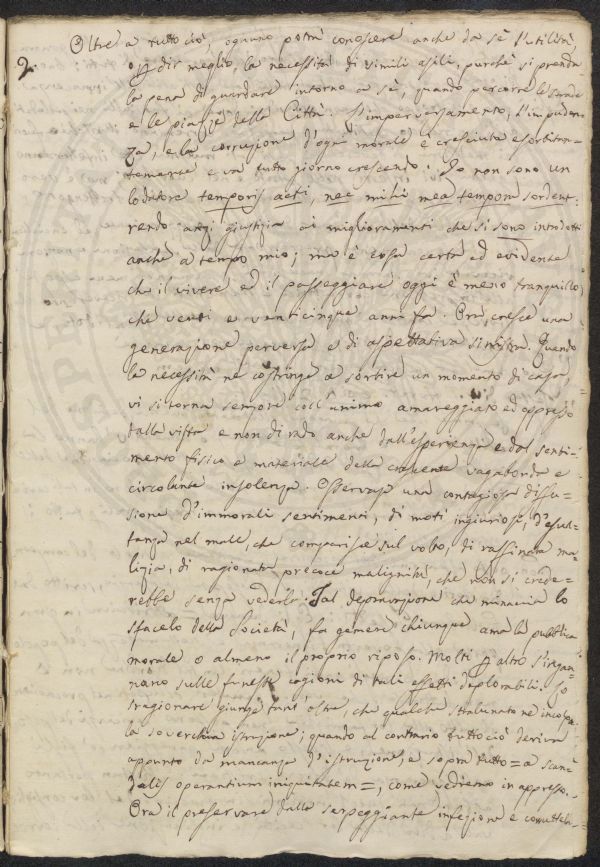 2.
Oltre a tutto ciò, ognuno potrà conoscere anche da sè l'utilità,
o p dir meglio, la necessità di simili asili, purchè si prenda
la pena di guardare intorno a sè, quando percorre le strade
e le piazze della Città. L'imperversamento, l'impuden-
za, e la corruzione d'ogni morale è cresciuta esorbitan-
temente e va tutto giorno crescendo. Io non sono un
lodatore temporis acti, nec mihi mea tempora sordent:
rendo anzi giustizia ai miglioramenti che si sono introdotti
anche a tempo mio; ma è cosa certa ed evidente
che il vivere ed il passeggiare oggi è meno tranquillo,
che venti e venticinque anni fa. Ora, cresce una
generazione perversa e di aspettativa sinistra. Quando
la necessità ne costringe a sortire un momento di casa,
vi si torna sempre coll'animo amareggiato ed oppresso
dalla vista e non di rado anche dall'esperienza e dal senti-
mento fisico e materiale della crescente vagabonda e
circolante insolenza. Osservasi una contagiosa diffu-
sione d'immorali sentimenti, di moti ingiuriosi, d'esul-
tanza nel male, che comparisce sul volto, di raffinata ma-
lizia, di ragionata precoce malignità, che non si crede-
rebbe senza vederla. Tal depravazione che minaccia lo
sfacelo della Società, fa gemere chiunque ama la pubblica
morale o almeno il proprio riposo. Molti p altro s'ingan-
nano sulle funeste cagioni di tali effetti deplorabili. Lo
sragionare giunge tant'oltre, che qualche stralunato ne incolpa
la soverchia istruzione; quando al contrario tutto ciò deriva
appunto da mancanza d'istruzione, e sopra tutto = a scan-
dalis operantium iniquitatem =, come vedremo in appresso.
Ora il preservare dalla serpeggiante infezione e